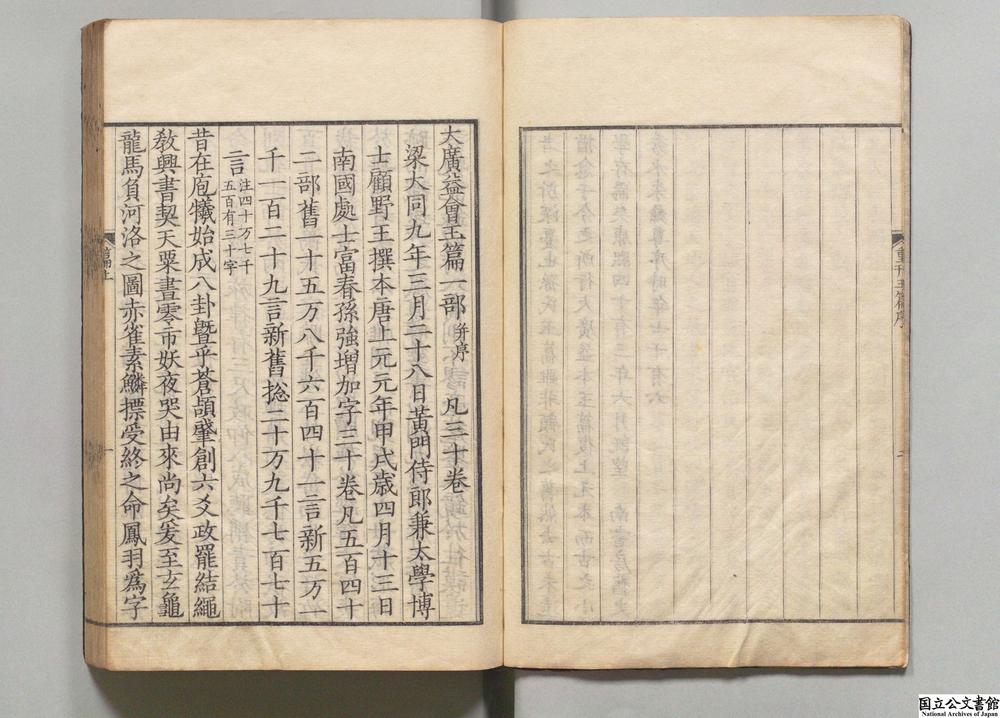 大廣益會玉篇一部 并序 凡三十卷
梁大同九年三月二十八日黃門侍郎兼太學博
士顧野王撰本唐上元元年甲戌歲四月十三日
南國處士富春孫強增加字三十卷凡五百四十
二部舊一十五万八千六百四十一言新五万一
千一百二十九言新舊捴二十万九千七百七十
言 注四十万七千
五百有三十字
昔在庖犧始成八卦曁乎蒼頡肇創六爻政罷結繩
敎興書契天粟晝零市妖夜哭由來尚矣爰至玄龜
龍馬負河洛之圖赤雀素鱗摽受終之命鳳羽爲字
重刊玉篇序
國立公文書館
National Archives of Japan